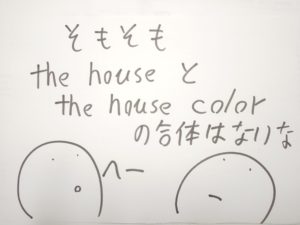 そもそも
the house と
the house color
の合体はないな
へー